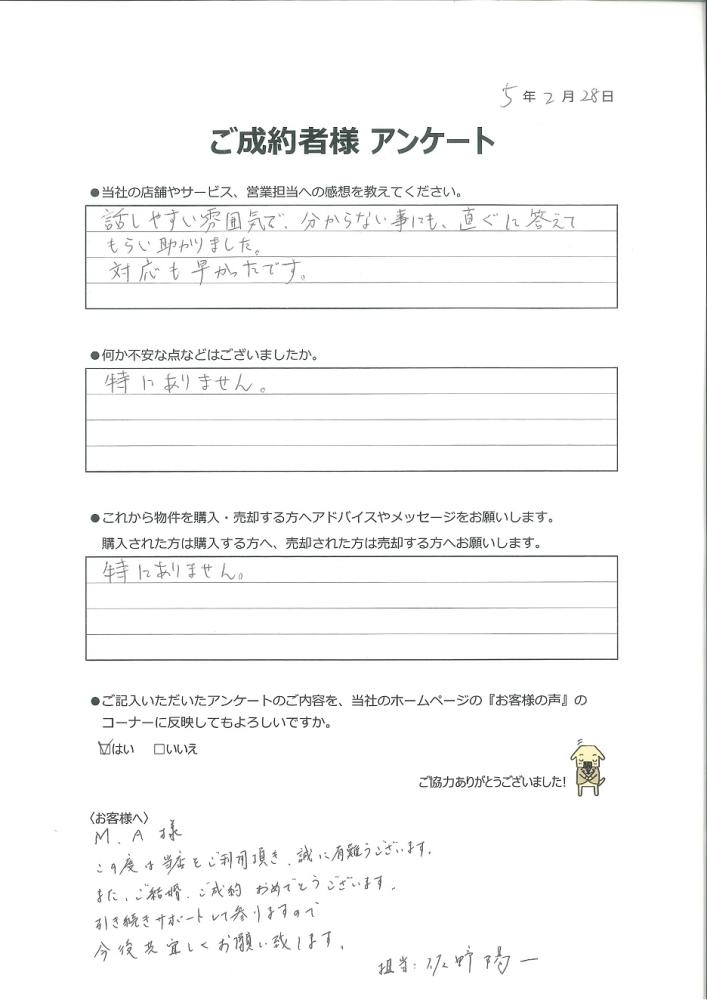 5年2月28日
ご成約者様 アンケート
●当社の店舗やサービス、営業担当への感想を教えてください。
話しやすい雰囲気で、分からない事にも、直ぐに答えて
もらい助かりました。
対応も早かったです。
●何か不安な点などはございましたか。
特にありません。
●これから物件を購入・売却する方へアドバイスやメッセージをお願いします。
購入された方は購入する方へ、売却された方は売却する方へお願いします。
特にありません。
●ご記入いただいたアンケートのご内容を、当社のホームページの『お客様の声』の
コーナーに反映してもよろしいですか。
☑はい □いいえ
ご協力ありがとうございました!
〈お客様へ〉
M.A様
この度は当店をご利用頂き、誠に有難うございます。
また、ご結婚、ご成約 おめでとうございます。
引き続きサポートして参りますので
今後共宜しくお願い致します。
担当:佐野陽一